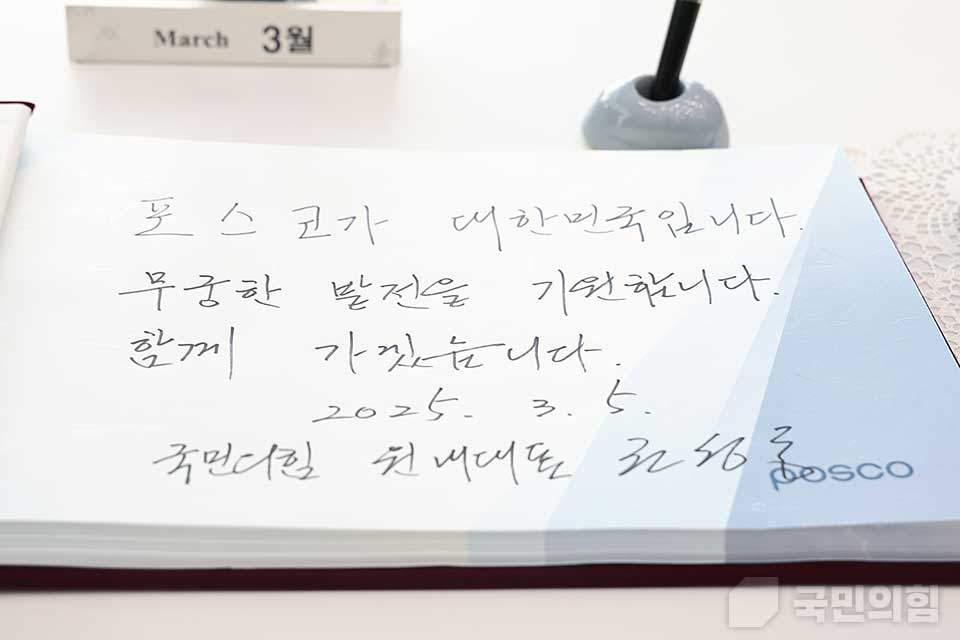 March 3월
포스코가 대한민국입니다.
무궁한 발전을 기원합니다.
함께 가겠습니다.
2025. 3. 5.
국민의힘 원내대표 권성동
posco
국민의힘